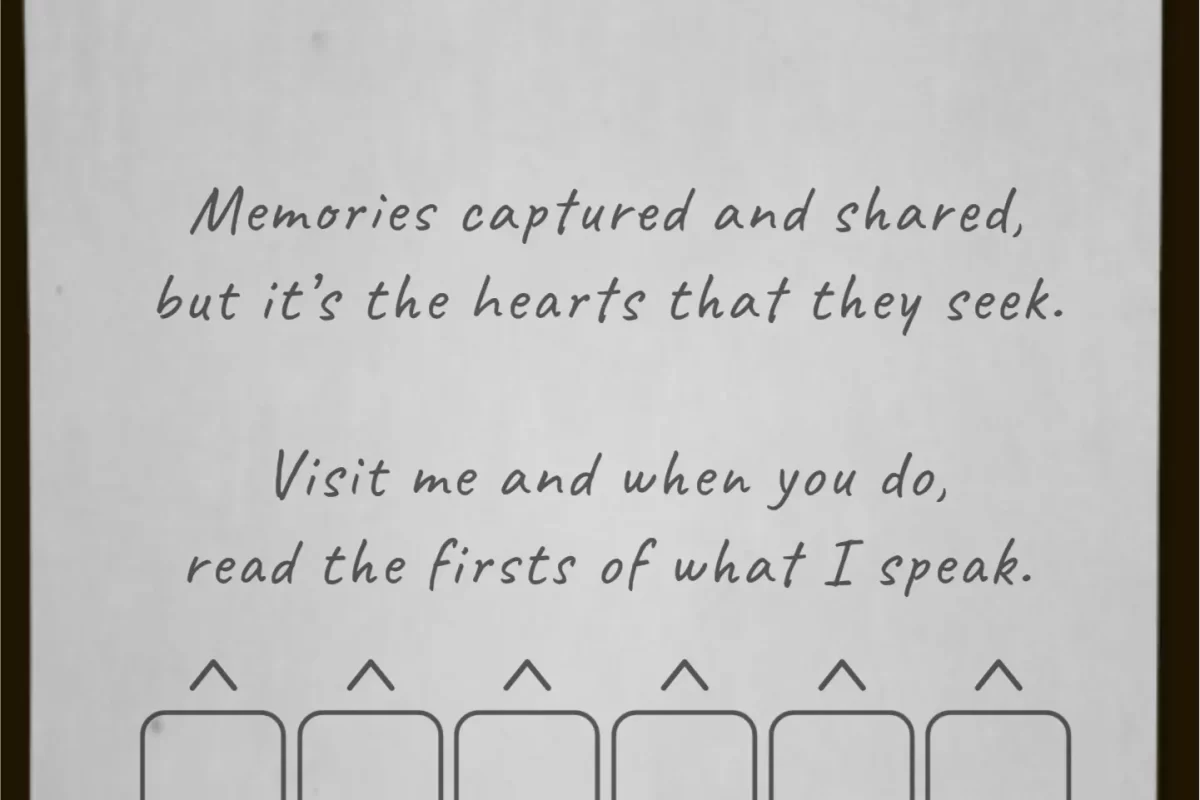 Memories captured and shared,
but it's the hearts that they seek.
Visit me and when you do,
read the firsts of what I speak.